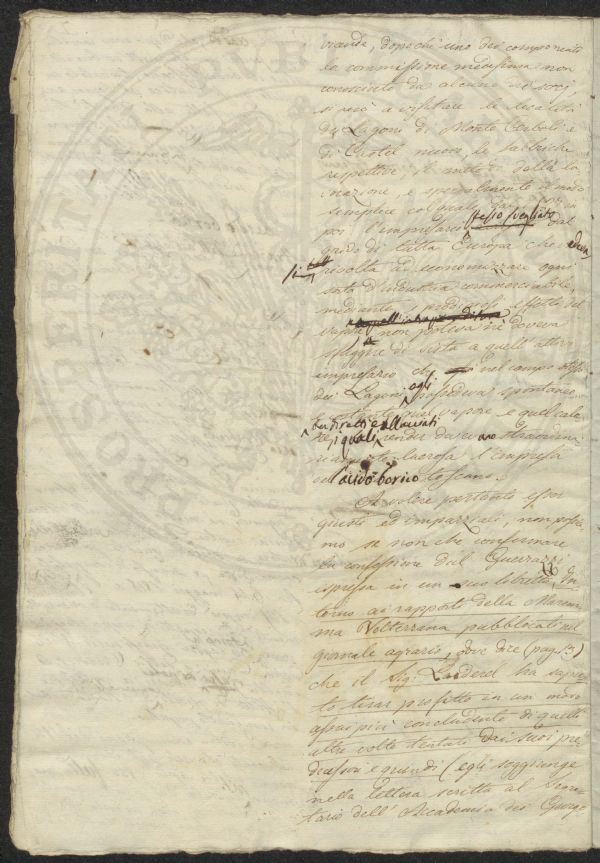 vrande, dopochè uno dei componenti
la commissione medesima non
conosciuto da alcuno dei socj,
si recò a visitare le località
dei Lagoni di Monte Cerboli e
di Castel nuovo, le fabbriche
respettive, il metodo della la
vorazione, e specialmente il modo
semplice col quale
poi l'impresario stesso svegliato dal
grido di tutta Europa che aveva
si rivolta ad economizzare ogni
sorta d'industria commerciabile,
mediante i prodigiosi effetti del
vapore non poteva nè doveva
sfuggire di vista a quell'attivo
impresario che nel campo
dei Lagoni egli possedeva spontaneo
e quel vapore, e quel calo
re, ben diretti e allacciati
i quali render doveano straordina
riamente lucrosa l'impresa
dell'acido borico toscano.
A volere pertanto esser
giusti ed imparziali, non possia
mo se non che confermare
la confessione del Guerazzi
espressa in un suo libretto, In
torno ai rapporti della Marem
ma Volterrana pubblicati nel
giornale agrario, dove dice (pag. 13)
che il Sig. Larderel ha sapu
to tirar profitto in un modo
assai più concludente di quelli
altre volte tentati dai suoi pre
decessori e quindi (egli soggiunge
nella lettera scritta al Segre
tario dell'Accademia dei Georgo